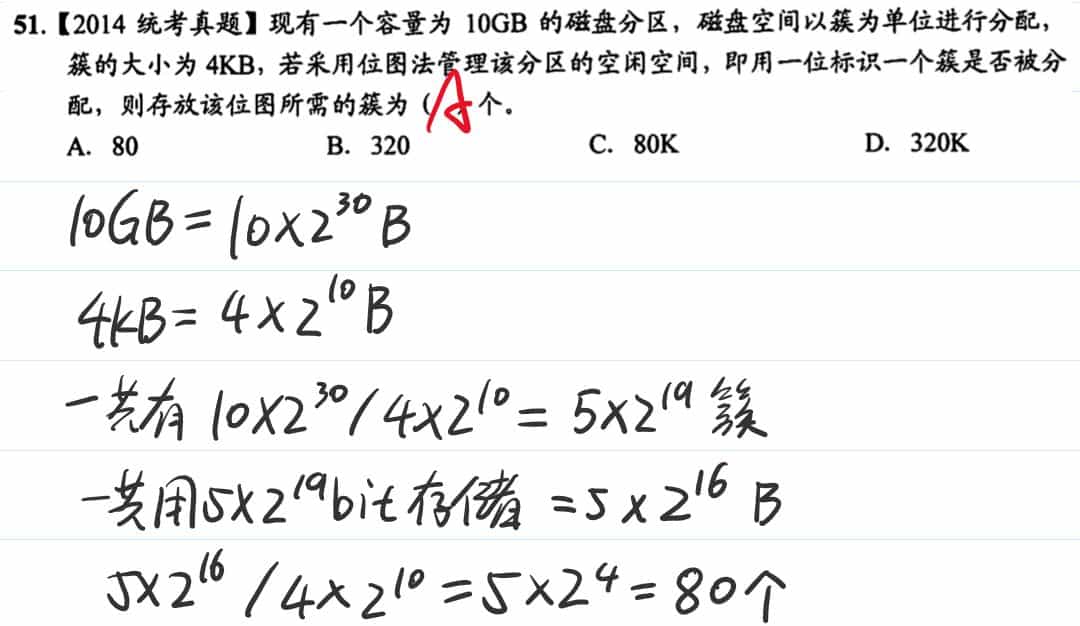 51.【2014 统考真题】现有一个容量为 10GB 的磁盘分区，磁盘空间以簇为单位进行分配，
簇的大小为 4KB，若采用位图法管理该分区的空闲空间，即用一位标识一个簇是否被分
配，则存放该位图所需的簇为（A）个。
A. 80 B. 320 C. 80K D. 320K
10GB = 10×2^30 B
4kB = 4×2^10 B
一共有 10×2^30 / 4×2^10 = 5×2^19 簇
一共用5×2^19bit存储 = 5×2^16 B
5×2^16 / 4×2^10 = 5×2^4 = 80个